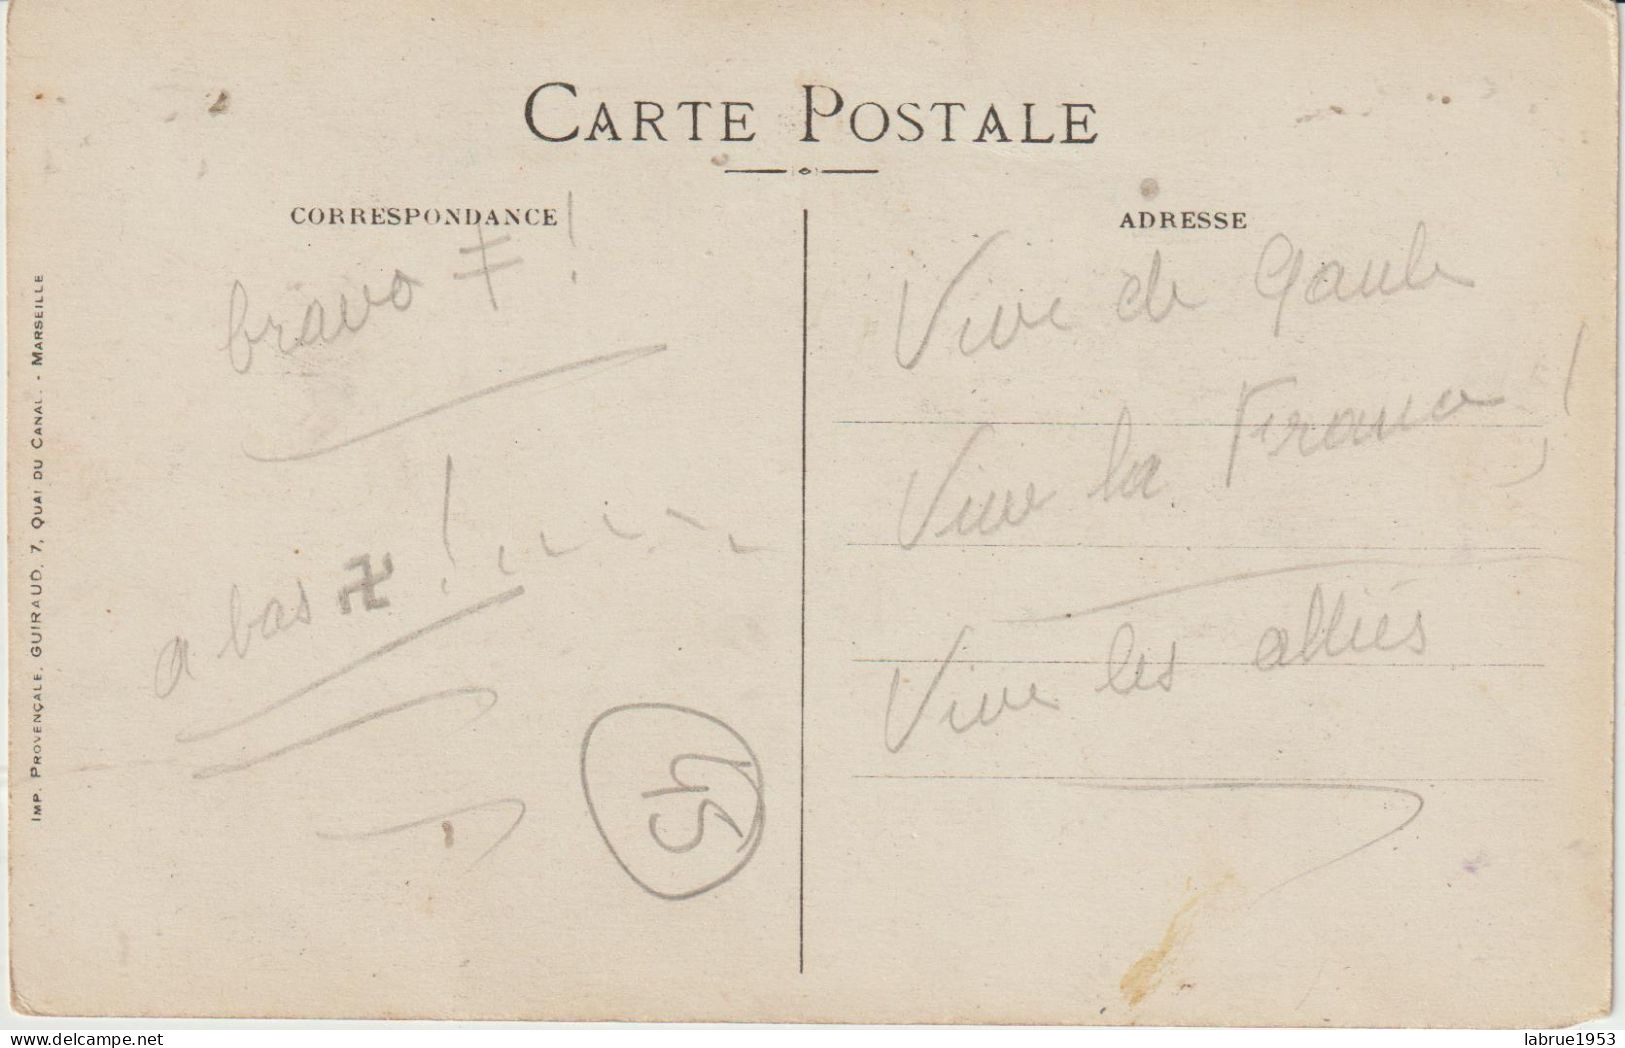 CARTE POSTALE
CORRESPONDANCE
ADRESSE
bravo ‡ !
a bas 卐 !
45
Vive de Gaule
Vive la France !
Vive les alliés
IMP. PROVENÇALE, GUIRAUD, 7, QUAI DU CANAL - MARSEILLE
delcampe.net
labrue1953